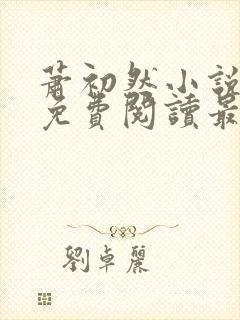 蕭初然小說
免費閱讀最
劉卓麗